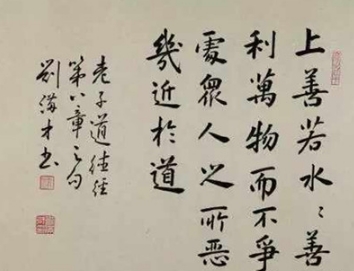 上善若水〻善
利萬物而不爭
處眾人之所惡
幾近於道
老子道德經
第八章之句
劉溝才书